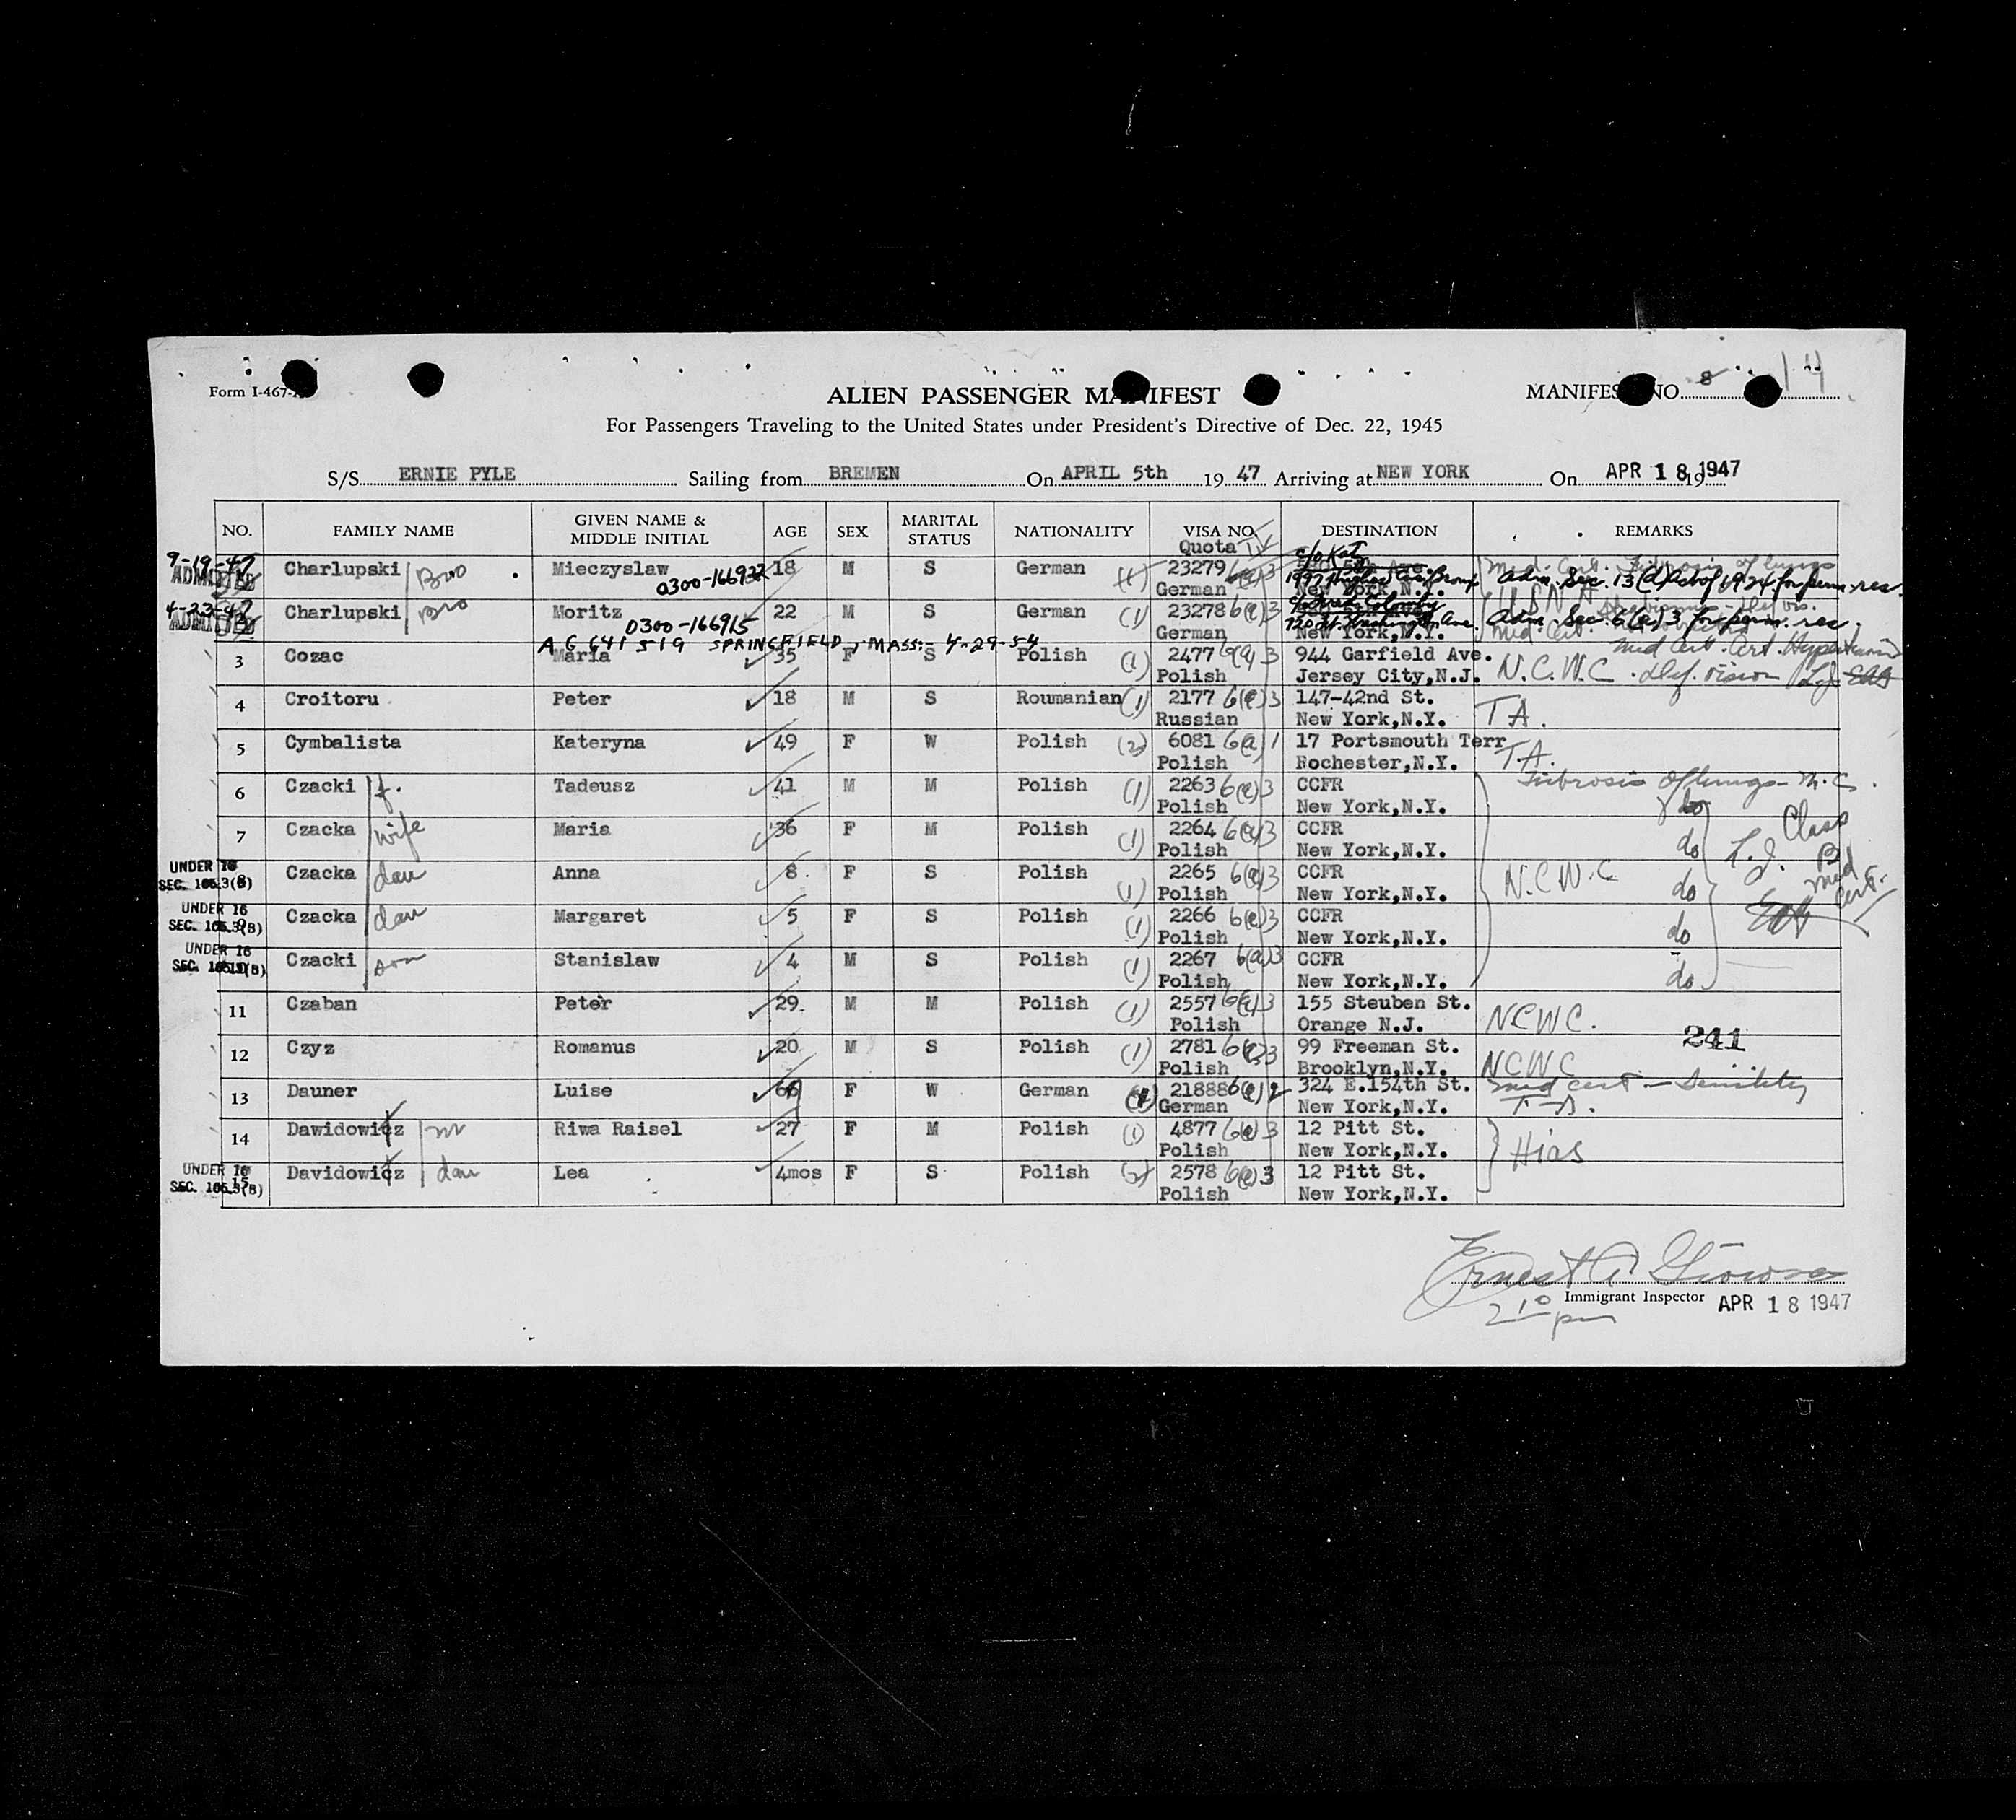 Form I-467-
ALIEN PASSENGER MANIFEST
MANIFEST NO. 8 14
For Passengers Traveling to the United States under President's Directive of Dec. 22, 1945
S/S ERNIE PYLE Sailing from BREMEN On APRIL 5th 19 47 Arriving at NEW YORK On APR 18 1947 19
NO. FAMILY NAME GIVEN NAME & MIDDLE INITIAL AGE SEX MARITAL STATUS NATIONALITY VISA NO. Quota DESTINATION REMARKS
9-19-47 ADMITTED Charlupski Bro Mieczyslaw 18 M S German 23279 c/o Kat 5th Ave. Med. Cert. Fibrosis of lungs
0300-166932 German 1997 Hughes Ave Bronx New York, N.Y. Adm. Sec. 13(d) Act of 1924 for perm. res.
4-23-47 ADMITTED Charlupski Bro Moritz 22 M S German (1) 23278 6(e)3
0300-166915 German 720 Ft. Washington Ave. New York, N.Y. Adm. Sec. 6(e)3 for perm. res.
A6 641 519 SPRINGFIELD, MASS. 4-29-54
3 Cozac Maria 35 F S Polish (1) 2477 3 944 Garfield Ave. Med Cert. Hypertension
Polish Jersey City,N.J. N.C.W.C. def. vision
4 Croitoru Peter 18 M S Roumanian (1) 2177 6(e)3 147-42nd St.
Russian New York,N.Y. T A.
5 Cymbalista Kateryna 49 F W Polish (2) 6081 6(a)1 17 Portsmouth Terr
Polish Rochester,N.Y. T.A.
6 Czacki f. Tadeusz 41 M M Polish (1) 2263 6(e)3 CCFR Fibrosis of lungs - M.C.
Polish New York,N.Y. do
7 Czacka wife Maria 36 F M Polish (1) 2264 6(e)3 CCFR
Polish New York,N.Y. do Class B Med Cert.
UNDER 16 SEC. 165.3(B) 8 Czacka dau Anna 8 F S Polish (1) 2265 6(e)3 CCFR N.C.W.C
Polish New York,N.Y. do
UNDER 16 SEC. 165.3(B) 9 Czacka dau Margaret 5 F S Polish (1) 2266 6(e)3 CCFR
Polish New York,N.Y. do
UNDER 16 SEC. 165.3(B) 10 Czacki son Stanislaw 4 M S Polish (1) 2267 6(e)3 CCFR
Polish New York,N.Y. do
11 Czaban Peter 29 M M Polish (1) 2557 6(e)3 155 Steuben St.
Polish Orange N.J. NCWC.
241
12 Czyz Romanus 20 M S Polish (1) 2781 6(e)3 99 Freeman St.
Polish Brooklyn,N.Y. NCWC
13 Dauner Luise 66 F W German 21888 6(e)2 324 E.154th St. med cert - Senility
German New York,N.Y. T-A.
14 Dawidowicz m Riwa Raisel 27 F M Polish (1) 4877 6(e)3 12 Pitt St.
Polish New York,N.Y. Hias
UNDER 16 SEC. 165.3(B) 15 Davidowicz dau Lea 4mos F S Polish 2578 6(e)3 12 Pitt St.
Polish New York,N.Y.
Ernest
Immigrant Inspector APR 18 1947
2 10 pm